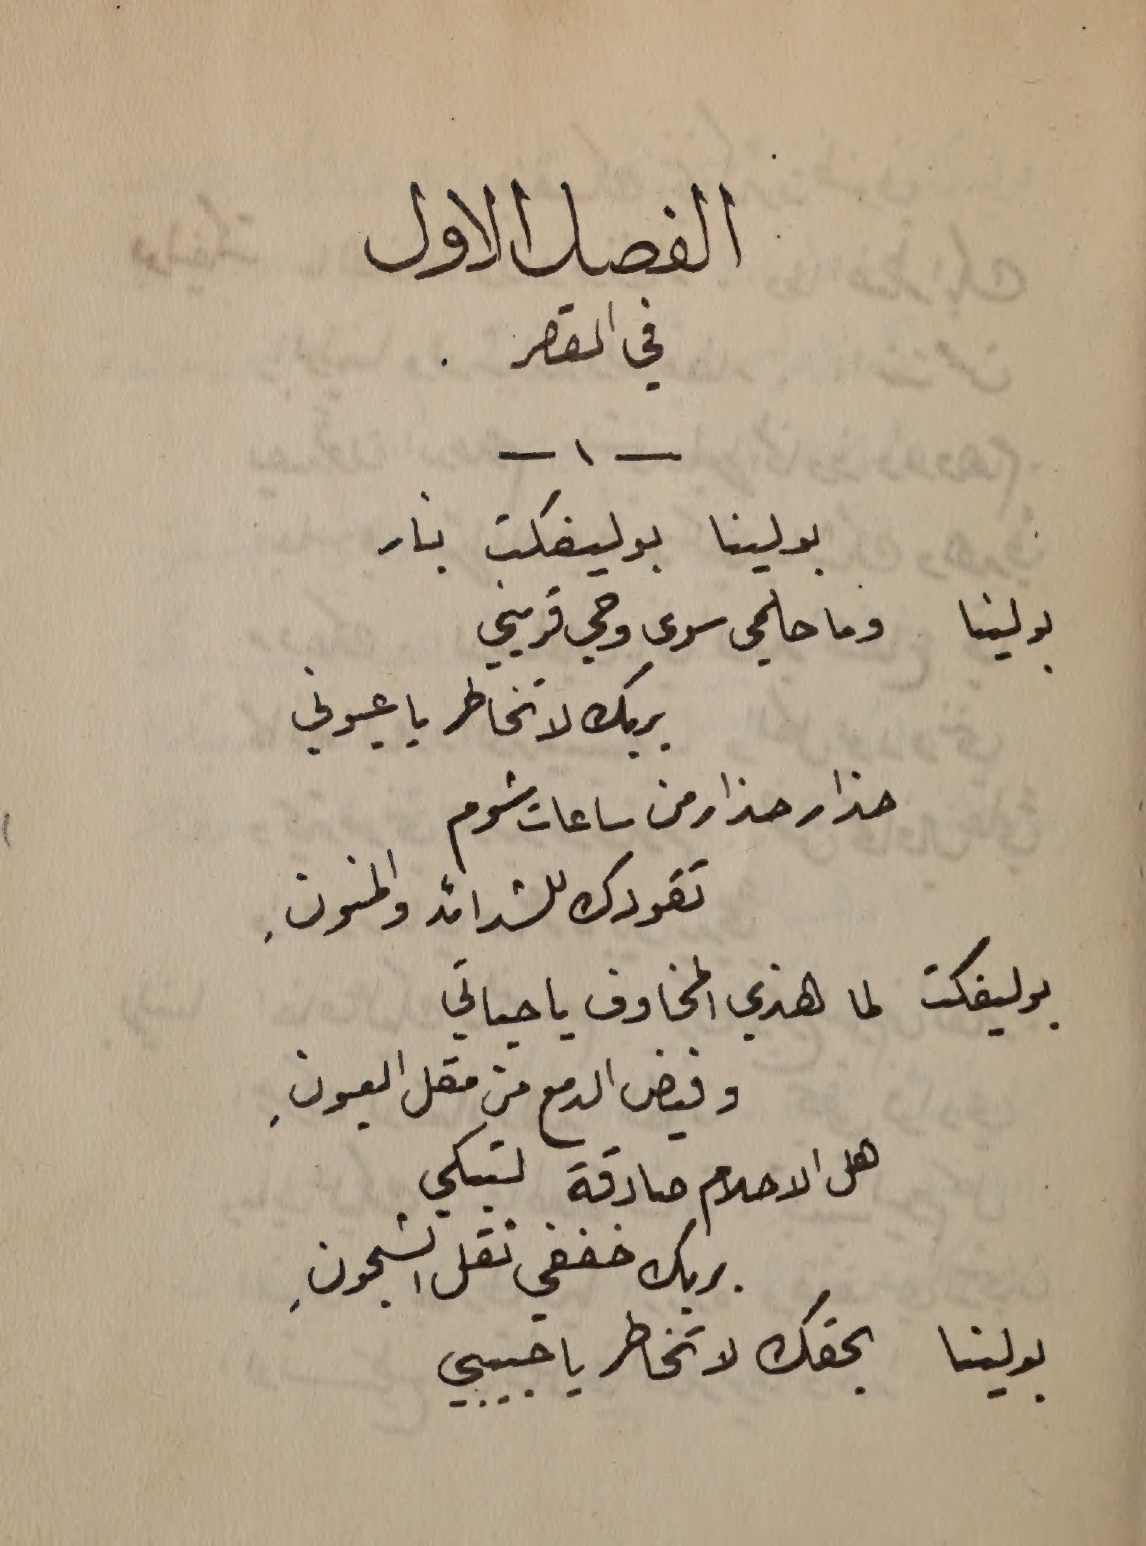 الفصل الاول
في القصر .
— ١ —
بولينا بوليفكت بنار
بولينا وما حلمي سوى وحي قريني
بربك لا تخاطر يا عيوني
حذار حذار من ساعات شوم
تقودك للشدائد والمنونِ
بوليفكت لما هذي المخاوف يا حياتي
وفيض الدمع من مقل العيونِ
هل الاحلام صادقة لتبكي
بربك خففي ثقل الشجونِ
بولينا بحقك لا تخاطر يا حبيبي